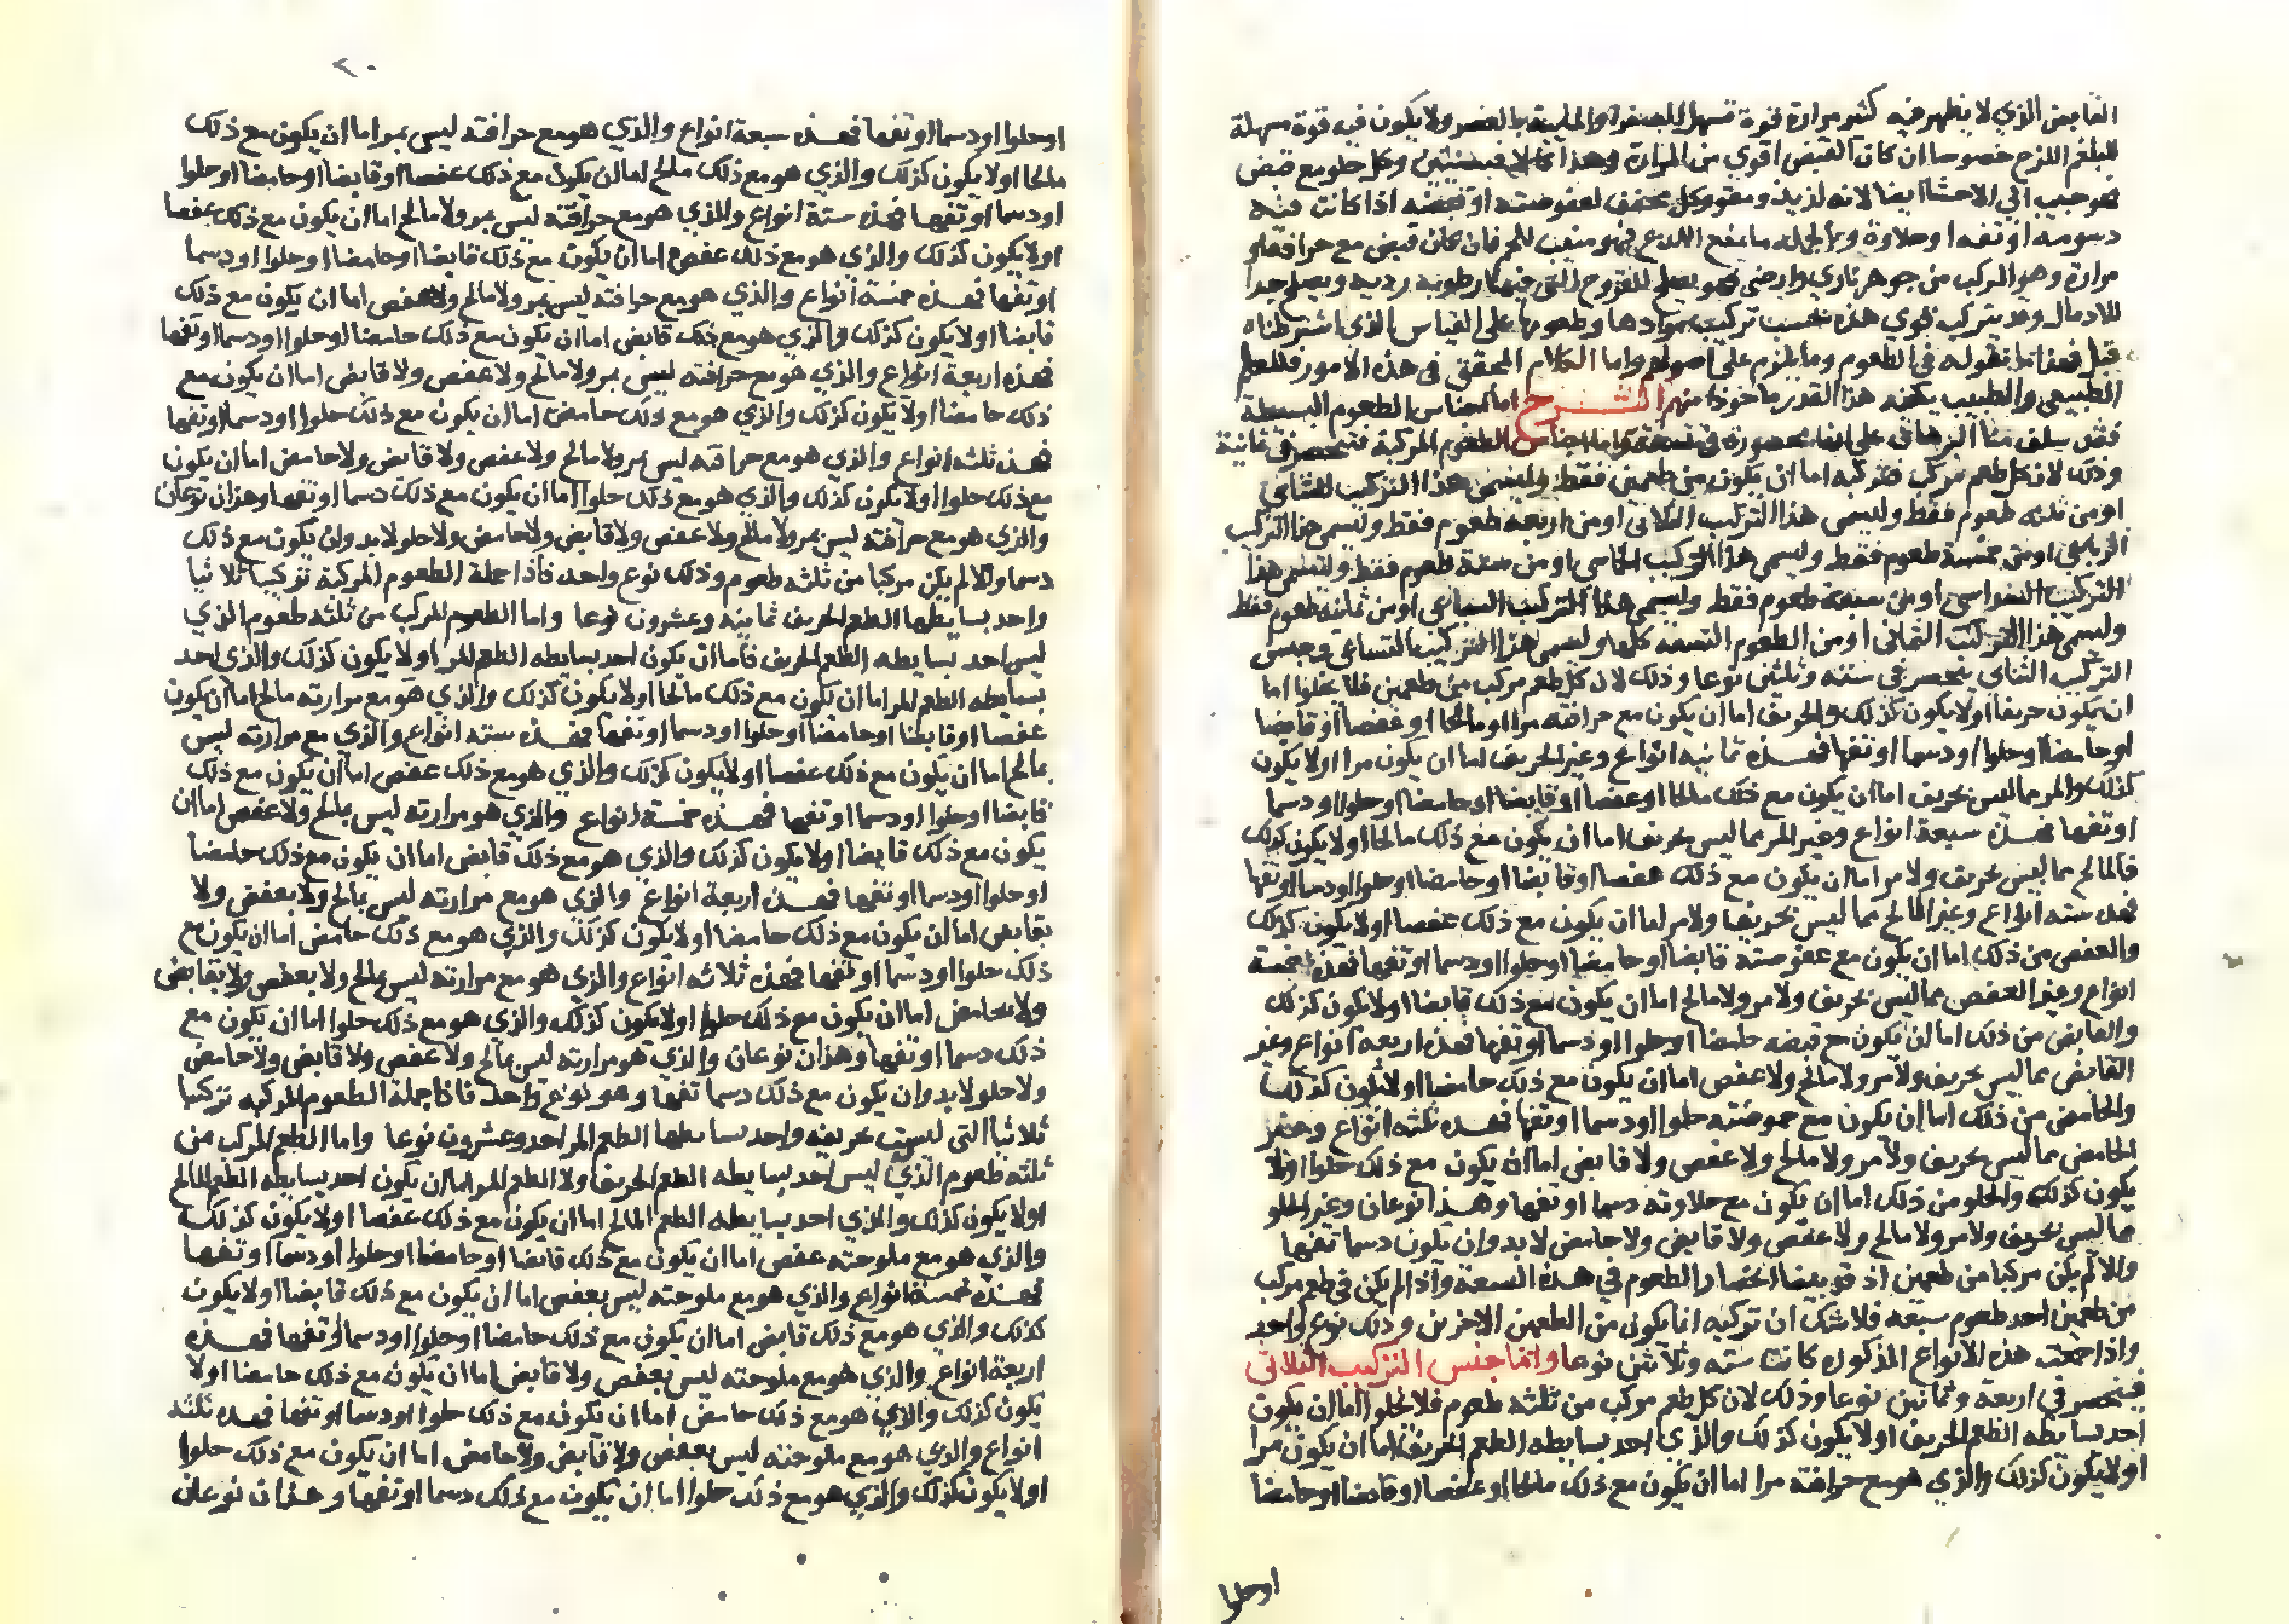 القابض الذي لا يظهر فيه كثير مرارة قوة تسهل للصفرا والمايية بالعصر ولا يكون فيه قوة مسهلة
للبلغم اللزج خصوصا ان كان القبض اقوي من المرارة وهذا كالافسنتين وكل حلو مع قبض
فهو حبيب الي الاحشا ايضا لانه لذيذ ومقو وكل مخفف لعفوصته او قبضه اذا كانت فيه
دسومه او تفه او حلاوة وبالجمله ما يمنع اللدع فهو منبت للحم فان كان قبض مع حرافة او
مرارة وهو المركب من جوهر ناري وارضي فهو يصلح للقروح التي فيها رطوبه رديه ويصلح جدا
للادمال وقد يتركب قوي هذه بحسب تركيب موادها وطعومها على القياس الذي اشترطناه
قبل فهذا ما نقوله في الطعوم وما يلزم على اصولهم واما الكلام المحقق في هذه الامور فللعلم
الطبيعي والطبيب يكفيه هذا القدر ماخوذا منهم الشرح اما اجناس الطعوم البسيطة
فقد سلف منا البرهان على انها محصورة في تسعة واما اجناس الطعوم المركبة فتنحصر في ثمانية
وذلك لان كل طعم مركب فتركبه اما ان يكون من طعمين فقط وليسمى هذا التركيب الثنائي
او من ثلثه طعوم فقط وليسمى هذا التركيب الثلاثي او من اربعة طعوم فقط وليسمى هذا التركيب
الرباعي او من خمسة طعوم فقط وليسمى هذا التركيب الخماسي او من ستة طعوم فقط وليسمى هذا
التركيب السداسي او من سبعة طعوم فقط وليسمى هذا التركيب السباعي او من ثمانية طعوم فقط
وليسمى هذا التركيب الثماني او من الطعوم التسعه كلها وليسمى هذا التركيب التساعي وجنس
التركيب الثنائي ينحصر في ستة وثلثين نوعا وذلك لان كل طعم مركب من طعمين فلا يخلوا اما
ان يكون حريفا او لا يكون كذلك والحريف اما ان يكون مع حرافته مرا او مالحا او عفصا او قابضا
او حامضا او حلوا او دسما او تفها فهذه ثمانيه انواع وغير الحريف اما ان يكون مرا او لا يكون
كذلك والمر مما ليس بحريف اما ان يكون مع ذلك مالحا او عفصا او قابضا او حامضا او حلوا او دسما
او تفها فهذه سبعة انواع وغير المر مما ليس بحريف اما ان يكون مع ذلك مالحا او لا يكون كذلك
فالمالح مما ليس بحريف ولا مر اما ان يكون مع ذلك عفصا او قابضا او حامضا او حلوا او دسما او تفها
فهذه سته انواع وغير المالح مما ليس بحريف ولا مر اما ان يكون مع ذلك عفصا او لا يكون كذلك
والعفص من ذلك اما ان يكون مع عفوصته قابضا او حامضا او حلوا او دسما او تفها فهذه خمسة
انواع وغير العفص مما ليس بحريف ولا مر ولا مالح اما ان يكون مع ذلك قابضا او لا يكون كذلك
والقابض من ذلك اما ان يكون مع قبضه حامضا او حلوا او دسما او تفها فهذه اربعه انواع وغير
القابض مما ليس بحريف ولا مر ولا مالح ولا عفص اما ان يكون مع ذلك حامضا او لا يكون كذلك
والحامض من ذلك اما ان يكون مع حموضته حلوا او دسما او تفها فهذه ثلثه انواع وغير
الحامض مما ليس بحريف ولا مر ولا مالح ولا عفص ولا قابض اما ان يكون مع ذلك حلوا او لا
يكون كذلك والحلو من ذلك اما ان يكون مع حلاوته دسما او تفها وهذا نوعان وغير الحلو
مما ليس بحريف ولا مر ولا مالح ولا عفص ولا قابض ولا حامض لا بد وان يكون دسما تفها
والا لم يكن مركبا من طعمين اذ قد بينا انحصار الطعوم في هذه التسعة واذا لم يكن في طعم مركب
من طعمين احد طعوم سبعة فلا شك ان تركبه انما يكون من الطعمين الاخرين وذلك نوع واحد
واذا جمعت هذه الانواع المذكوره كانت سته وثلاثين نوعا واما جنس التركيب الثلاثي
فينحصر في اربعة وثمانين نوعا وذلك لان كل طعم مركب من ثلثه طعوم فلا يخلوا اما ان يكون
احد بسايطه الطعم الحريف او لا يكون كذلك والذي احد بسايطه الطعم الحريف اما ان يكون مرا
او لا يكون كذلك والذي هو مع حرافته مرا اما ان يكون مع ذلك مالحا او عفصا او قابضا او حامضا
او حلوا
٢٠
او حلوا او دسما او تفها فهذه سبعة انواع والذي هو مع حرافته ليس بمر اما ان يكون مع ذلك
مالحا او لا يكون كذلك والذي هو مع ذلك مالح اما ان يكون مع ذلك عفصا او قابضا او حامضا او حلوا
او دسما او تفها فهذه ستة انواع والذي هو مع حرافته ليس بمر ولا مالح اما ان يكون مع ذلك عفصا
او لا يكون كذلك والذي هو مع ذلك عفص اما ان يكون مع ذلك قابضا او حامضا او حلوا او دسما
او تفها فهذه خمسة انواع والذي هو مع حرافته ليس بمر ولا مالح ولا عفص اما ان يكون مع ذلك
قابضا او لا يكون كذلك والذي هو مع ذلك قابض اما ان يكون مع ذلك حامضا او حلوا او دسما او تفها
فهذه اربعة انواع والذي هو مع حرافته ليس بمر ولا مالح ولا عفص ولا قابض اما ان يكون مع
ذلك حامضا او لا يكون كذلك والذي هو مع ذلك حامض اما ان يكون مع ذلك حلوا او دسما او تفها
فهذه ثلثه انواع والذي هو مع حرافته ليس بمر ولا مالح ولا عفص ولا قابض ولا حامض اما ان يكون
مع ذلك حلوا او لا يكون كذلك والذي هو مع ذلك حلوا اما ان يكون مع ذلك دسما او تفها وهذان نوعان
والذي هو مع حرافته ليس بمر ولا مالح ولا عفص ولا قابض ولا حامض ولا حلو لا بد وان يكون مع ذلك
دسما والا لم يكن مركبا من ثلثه طعوم وذلك نوع واحد فاذا جملة الطعوم المركبة تركيبا ثلاثيا
واحد بسايطها الطعم الحريف ثمانيه وعشرون نوعا واما الطعم المركب من ثلثه طعوم الذي
ليس احد بسايطه الطعم الحريف فاما ان يكون احد بسايطه الطعم المر او لا يكون كذلك والذي احد
بسايطه الطعم المر اما ان يكون مع ذلك مالحا او لا يكون كذلك والذي هو مع مرارته مالح اما ان يكون
عفصا او قابضا او حامضا او حلوا او دسما او تفها فهذه سته انواع والذي مع مرارته ليس
بمالح اما ان يكون مع ذلك عفصا او لا يكون كذلك والذي هو مع ذلك عفص اما ان يكون مع ذلك
قابضا او حلوا او دسما او تفها فهذه خمسة انواع والذي هو مرارته ليس بمالح ولا عفص اما ان
يكون مع ذلك قابضا او لا يكون كذلك والذي هو مع ذلك قابض اما ان يكون مع ذلك حامضا
او حلوا او دسما او تفها فهذه اربعة انواع والذي هو مع مرارته ليس بمالح ولا بعفص ولا
بقابض اما ان يكون مع ذلك حامضا او لا يكون كذلك والذي هو مع ذلك حامض اما ان يكون مع
ذلك حلوا او دسما او تفها فهذه ثلاثه انواع والذي هو مع مرارته ليس بمالح ولا بعفص ولا بقابض
ولا بحامض اما ان يكون مع ذلك حلوا او لا يكون كذلك والذي هو مع ذلك حلوا اما ان يكون مع
ذلك دسما او تفها وهذان نوعان والذي هو مرارته ليس بمالح ولا عفص ولا قابض ولا حامض
ولا حلو لا بد وان يكون مع ذلك دسما تفها وهو نوع واحد فاذا جملة الطعوم المركبه تركيبا
ثلاثيا التي ليست بحريفه واحد بسايطها الطعم المر احد وعشرون نوعا واما الطعم المركب من
ثلثه طعوم الذي ليس احد بسايطه الطعم الحريف ولا الطعم المر اما ان يكون احد بسايطه الطعم المالح
او لا يكون كذلك والذي احد بسايطه الطعم المالح اما ان يكون مع ذلك عفصا او لا يكون كذلك
والذي هو مع ملوحته عفص اما ان يكون مع ذلك قابضا او حامضا او حلوا او دسما او تفها
فهذه خمسة انواع والذي هو مع ملوحته ليس بعفص اما ان يكون مع ذلك قابضا او لا يكون
كذلك والذي هو مع ذلك قابض اما ان يكون مع ذلك حامضا او حلوا او دسما او تفها فهذه
اربعة انواع والذي هو مع ملوحته ليس بعفص ولا قابض اما ان يكون مع ذلك حامضا او لا
يكون كذلك والذي هو مع ذلك حامض اما ان يكون مع ذلك حلوا او دسما او تفها فهذه ثلثه
انواع والذي هو مع ملوحته ليس بعفص ولا قابض ولا حامض اما ان يكون مع ذلك حلوا
او لا يكون كذلك والذي هو مع ذلك حلوا اما ان يكون مع ذلك دسما او تفها وهذان نوعان